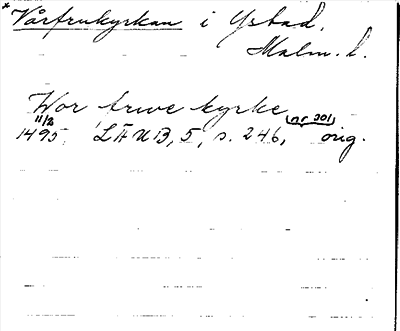 * Vårfrukyrkan i Ystad.
Malm. l.
Wor frwe kyrke
1495 11/2 LÄUB, 5, s. 246, (nr 301) orig.